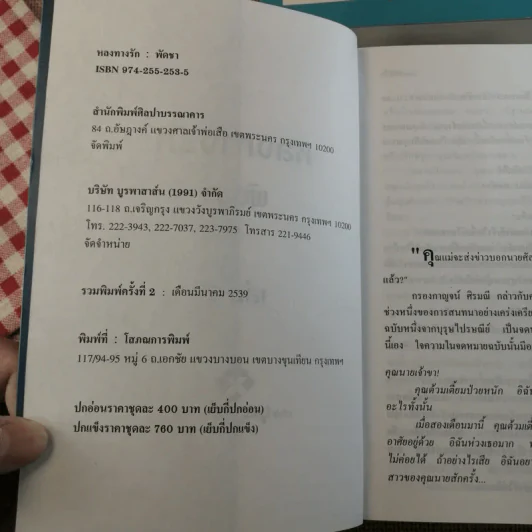 หลงทางรัก : พัดชา
ISBN 974-255-253-5
สำนักพิมพ์ศิลปาบรรณาคาร
84 ถ.อัษฎางค์ แขวงศาลเจ้าพ่อเสือ เขตพระนคร กรุงเทพฯ 10200
จัดพิมพ์
บริษัท บูรพาสาส์น (1991) จำกัด
116-118 ถ.เจริญกรุง แขวงวังบูรพาภิรมย์ เขตพระนคร กรุงเทพฯ 10200
โทร. 222-3943, 222-7037, 223-7975 โทรสาร 221-9446
จัดจำหน่าย
รวมพิมพ์ครั้งที่ 2 : เดือนมีนาคม 2539
พิมพ์ที่ : โสภณการพิมพ์
117/94-95 หมู่ 6 ถ.เอกชัย แขวงบางบอน เขตบางขุนเทียน กรุงเทพฯ
ปกอ่อนราคาชุดละ 400 บาท (เย็บกี่ปกอ่อน)
ปกแข็งราคาชุดละ 760 บาท (เย็บกี่ปกแข็ง)
"คุณแม่จะส่งข่าวบอกนายศัล
แล้ว?"
กรองกาญจน์ ศิรมณี กล่าวกับ
ช่วงหนึ่งของการสนทนาอย่างเคร่งเครีย
ฉบับหนึ่งจากบุรุษไปรษณีย์ เป็นจดห
นี้เอง ใจความในจดหมายฉบับนั้นมีอ
คุณนายเจ้าขา!
คุณด้วมเตี้ยมป่วยหนัก อิฉั
อะไรทั้งนั้น
เมื่อสองเดือนมานี้ คุณด้วมเตี้
อาศัยอยู่ด้วย อิฉันห่วงเธอมาก
ไม่ค่อยได้ ถ้าอย่างไรเสีย อิฉันอยา
สาวของคุณนายสักครั้ง...